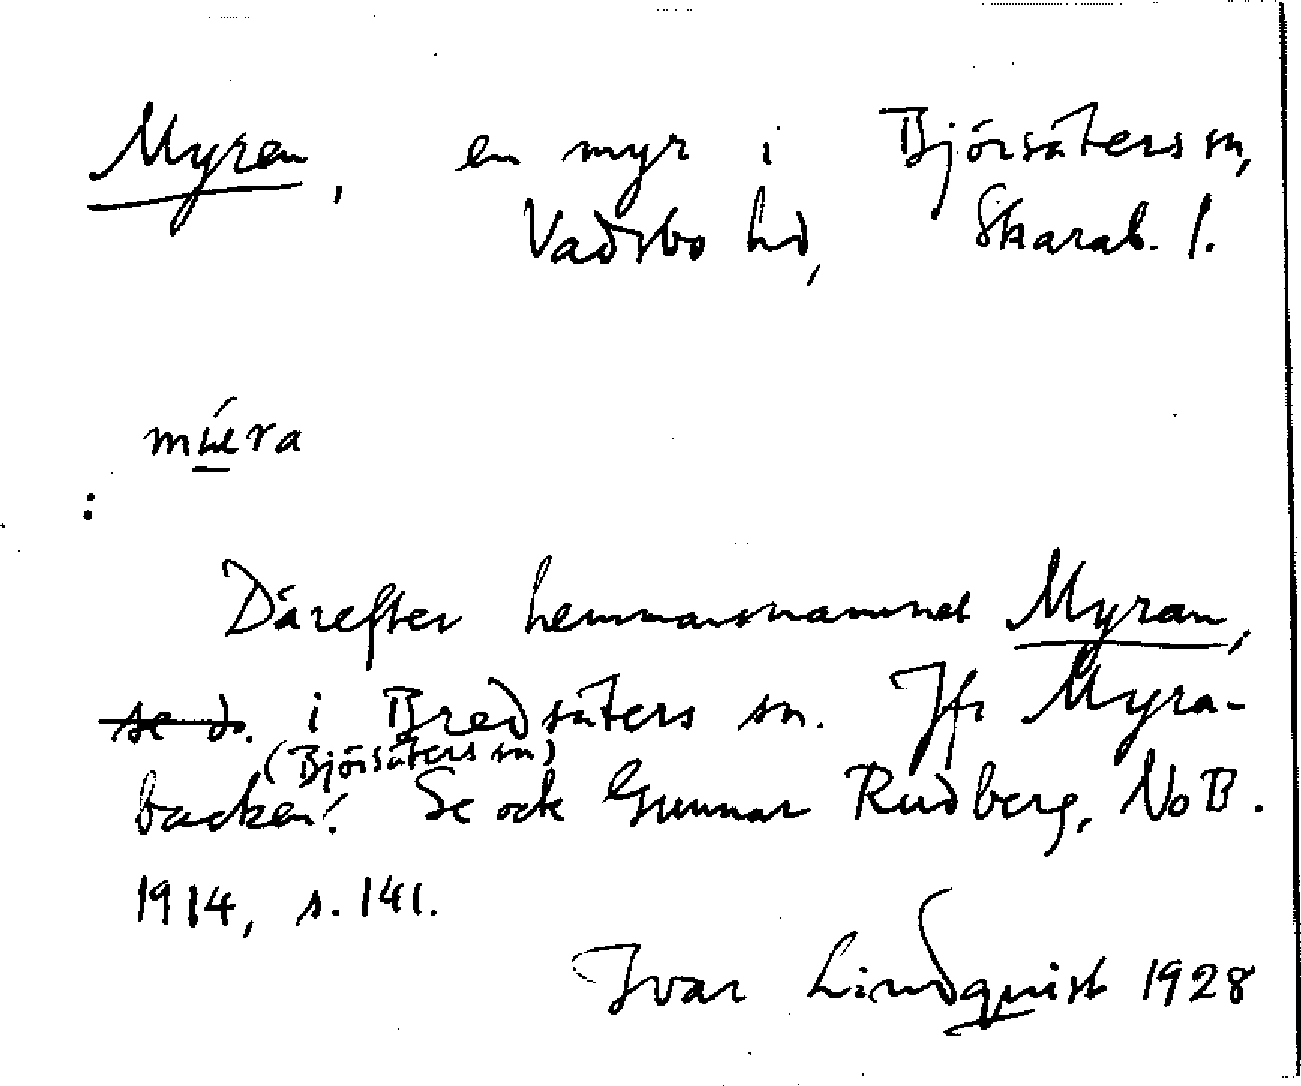 Myren, en myr i Björsäters sn,
Vadsbo hd, Skarab. l.
:
Därefter hemmansnamnet Myran,
se d. i Bredsäters sn. Jfr Myra-
(Björsäters sn)
backen! Se ock Gunnar Rudberg, NoB.
1914, s. 141.
Ivar Lindquist 1928